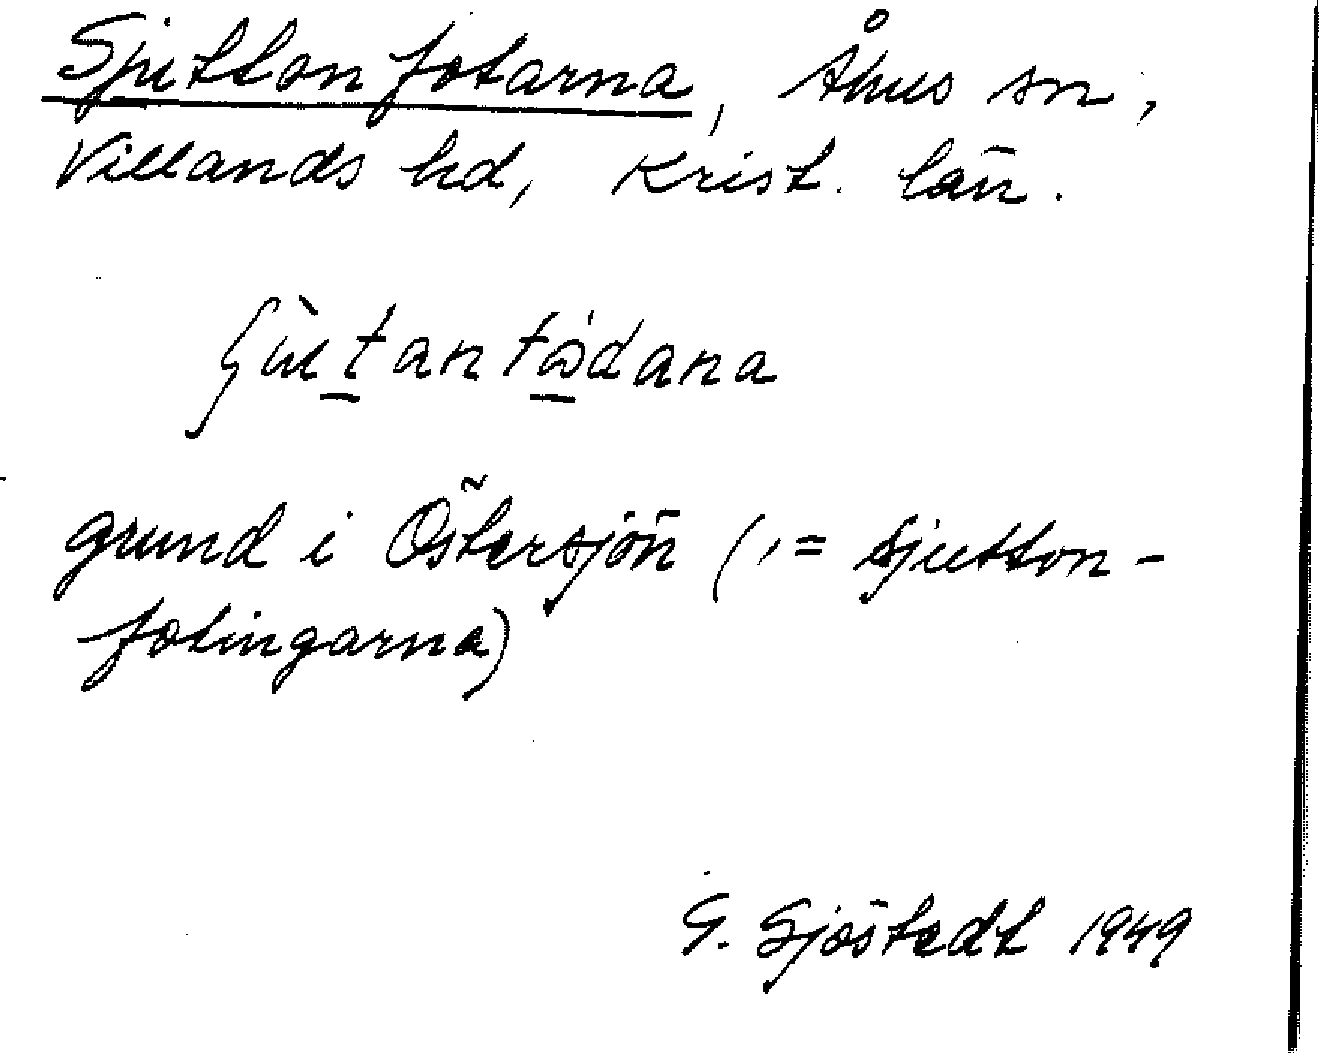 Sjuttonfotarna, Åhus sn,
Villands hd, Krist. län.
grund i Östersjön (ɔ: = sjutton-
fotingarna)
G. Sjöstedt 1949